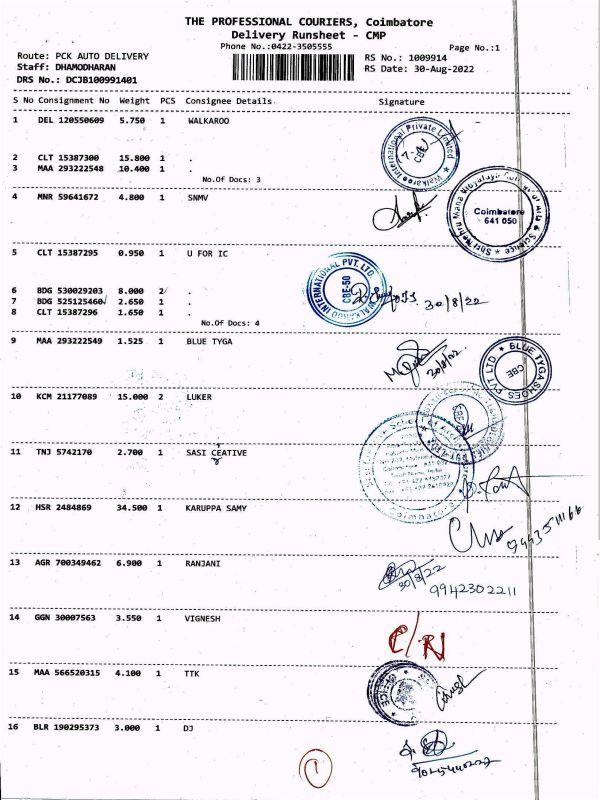 THE PROFESSIONAL COURIERS, Coimbatore
Delivery Runsheet - CMP
Phone No.:0422-3505555
Page No.:1
Route: PCK AUTO DELIVERY
RS No.: 1009914
Staff: DHAMODHARAN
RS Date: 30-Aug-2022
DRS No.: DCJB100991401
S No Consignment No Weight PCS Consignee Details Signature
1 DEL 120550609 5.750 1 WALKAROO
Walkaroo International Private Limited
CBE
2 CLT 15387300 15.800 1 .
3 MAA 293222548 10.400 1 .
No.Of Docs: 3
4 MNR 59641672 4.800 1 SNMV
Coimbatore
641 050
5 CLT 15387295 0.950 1 U FOR IC
WALKAROO INTERNATIONAL PVT. LTD.
CBE-50
6 BDG 530029203 8.000 2 .
7 BDG 525125460 2.650 1 .
30/8/22
8 CLT 15387296 1.650 1 .
No.Of Docs: 4
9 MAA 293222549 1.525 1 BLUE TYGA
30/8/22
BLUE TYGASHOES PVT LTD
CBE
10 KCM 21177089 15.000 2 LUKER
11 TNJ 5742170 2.700 1 SASI CEATIVE
12 HSR 2484869 34.500 1 KARUPPA SAMY
13 AGR 700349462 6.900 1 RANJANI
30/8/22
9942302211
14 GGN 30007563 3.550 1 VIGNESH
C/RN
15 MAA 566520315 4.100 1 TTK
16 BLR 190295373 3.000 1 DJ
1